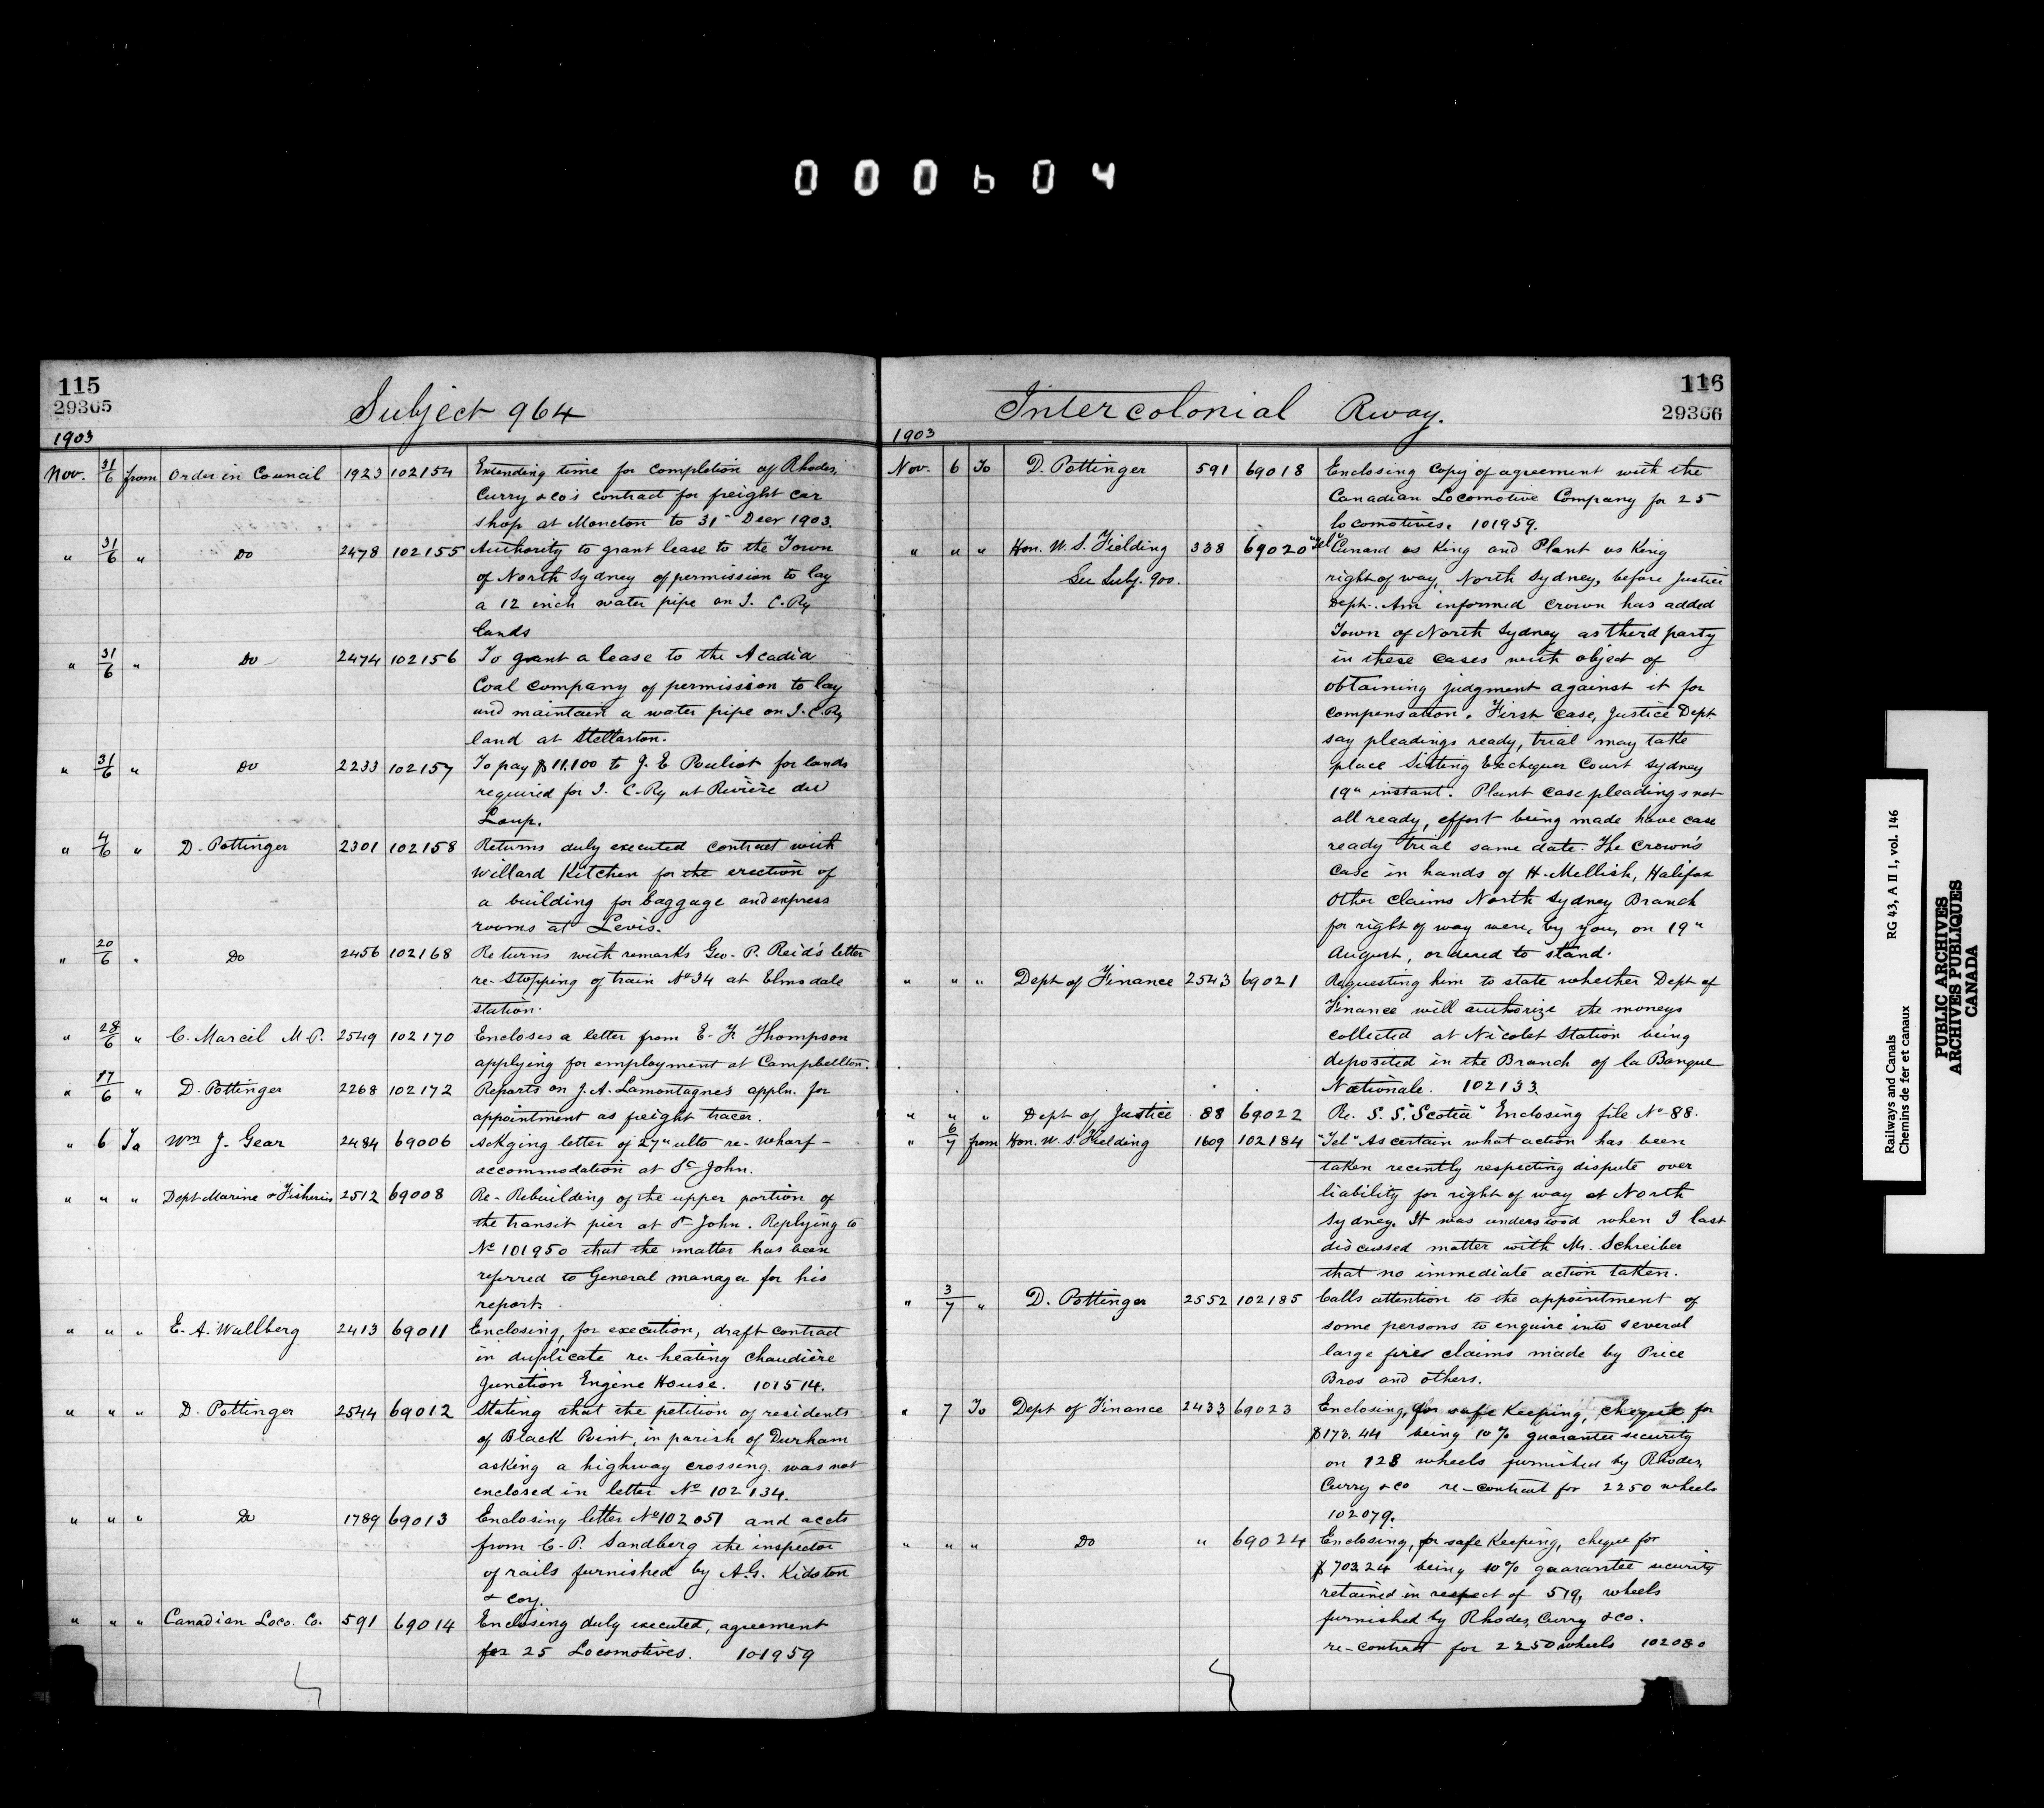 000604
115
29365
Subject 964
1903
Nov. 31/6 from Order in Council 1923 102154 Extending time for completion of Rhodes,
Curry & Co's contract for freight car
shop at Moncton to 31st Decr 1903.
" 31/6 " Do 2478 102155 Authority to grant lease to the Town
of North Sydney of permission to lay
a 12 inch water pipe on I. C. Ry
lands
" 31/6 " Do 2474 102156 To grant a lease to the Acadia
Coal Company of permission to lay
and maintain a water pipe on I. C. Ry
land at Stellarton.
" 31/6 " Do 2233 102157 To pay $11.100 to J. E Pouliot for lands
required for I. C. Ry at Rivière du
Loup.
" 4/6 " D. Pottinger 2301 102158 Returns duly executed contract with
Willard Kitchen for the erection of
a building for baggage and express
rooms at Levis.
" 20/6 " Do 2456 102168 Returns with remarks Geo. P. Reid's letter
re-stopping of train No 34 at Elmsdale
station.
" 28/6 " C. Marcil M.P. 2549 102170 Encloses a letter from E. F. Thompson
applying for employment at Campbellton.
" 17/6 " D. Pottinger 2268 102172 Reports on J. A. Lamontagne's appln. for
appointment as freight tracer.
" 6 To Wm J. Gear 2484 69006 Ackging letter of 27" ulto re-wharf-
accommodation at St John.
" " " Dept Marine & Fisheries 2512 69008 Re-Rebuilding of the upper portion of
the transit pier at St John. Replying to
No 101950 that the matter has been
referred to General manager for his
report.
" " " E. A. Wallberg 2413 69011 Enclosing, for execution, draft contract
in duplicate re-heating Chaudière
Junction Engine House. 101514.
" " " D. Pottinger 2544 69012 Stating that the petition of residents
of Black Point, in parish of Durham
asking a highway crossing was not
enclosed in letter No 102134.
" " " Do 1789 69013 Enclosing letter No 102051 and accts
from C. P. Sandberg the inspector
of rails furnished by A.G. Kidston
& Coy.
" " " Canadian Loco. Co. 591 69014 Enclosing duly executed, agreement
for 25 Locomotives. 101959
116
29366
Intercolonial Rway.
1903
Nov. 6 To D. Pottinger 591 69018 Enclosing copy of agreement with the
Canadian Locomotive Company for 25
locomotives. 101959.
" " " Hon. W. S. Fielding 338 69020 "Tel" Cunard vs King and Plant vs King
See Subj. 900. right of way, North Sydney, before Justice
Dept. Am informed Crown has added
Town of North Sydney as third party
in these cases with object of
obtaining judgment against it for
compensation. First case, Justice Dept
say pleadings ready, trial may take
place Sitting Exchequer Court Sydney
19" instant. Plant case pleadings not
all ready, effort being made have case
ready trial same date. The Crown's
case in hands of H. Mellish, Halifax
Other claims North Sydney Branch
for right of way were, by you, on 19"
August, ordered to stand.
" " " Dept of Finance 2543 69021 Requesting him to state whether Dept of
Finance will authorize the moneys
collected at Nicolet Station being
deposited in the Branch of la Banque
Nationale. 102133.
" " " Dept of Justice 88 69022 Re. S. S. "Scotia" Enclosing file No 88.
" 6/7 from Hon. W. S. Fielding 1609 102184 "Tel" Ascertain what action has been
taken recently respecting dispute over
liability for right of way at North
Sydney. It was understood when I last
discussed matter with Mr. Schreiber
that no immediate action taken.
" 3/7 " D. Pottinger 2552 102185 Calls attention to the appointment of
some persons to enquire into several
large fires claims made by Price
Bros and others.
" 7 To Dept of Finance 2433 69023 Enclosing, for safe keeping, cheque for
$173.44 being 10% guarantee security
on 128 wheels furnished by Rhodes,
Curry & Co re-contract for 2250 wheels
102079.
" " " Do " 69024 Enclosing, for safe keeping, cheque for
$703.24 being 10% guarantee security
retained in respect of 519, wheels
furnished by Rhodes, Curry & Co.
re-contract for 2250 wheels 102080
Railways and Canals RG 43, A II 1, vol. 146
Chemins de fer et canaux
PUBLIC ARCHIVES
ARCHIVES PUBLIQUES
CANADA